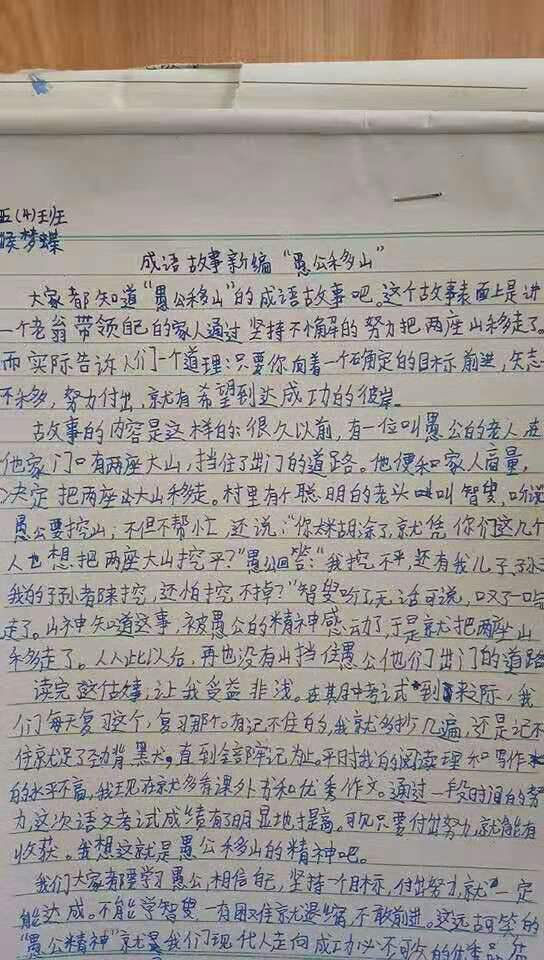 五(4)班
侯梦蝶
成语故事新编“愚公移山”
大家都知道“愚公移山”的成语故事吧。这个故事表面上是讲
一个老翁带领自己的家人通过坚持不懈的努力把两座山移走了。
而实际告诉人们一个道理:只要你向着一个确定的目标前进,矢志
不移,努力付出,就有希望到达成功的彼岸。
故事的内容是这样的:很久以前,有一位叫愚公的老人,在
他家门口有两座大山,挡住了出门的道路。他便和家人商量,
决定把两座大山移走。村里有个聪明的老头叫智叟,听说
愚公要挖山,不但不帮忙,还说:“你太糊涂了,就凭你们这几个
人也想把两座大山挖平?”愚公回答:“我挖不平,还有我儿子、孙子
我的子孙都来挖,还怕挖不掉?”智叟听了无话可说,叹了一口气
走了。山神知道这事,被愚公的精神感动了,于是就把两座山
移走了。从此以后,再也没有山挡住愚公他们出门的道路
读完整估事,让我受益非浅。在其中考试到来之际,我
们每天复习这个,复习那个。有记不住的,我就多抄几遍,还是记不
住就足了劲背,直到全部牢记为止。平时我的阅读理和写作
的水平不高,我现在就多看课外书和优秀作文。通过一段时间的努
力,这次语文考试成绩有了明显地提高。可见只要付出努力,就能有
收获。我想这就是愚公移山的精神吧。
我们大家都要学习愚公,相信自己,坚持一个目标,付出努力,就一定
能达成。不能学智叟一有困难就退缩,不敢前进。这远
“愚公精神”就是我们现代人走向成功必不可少的优秀品